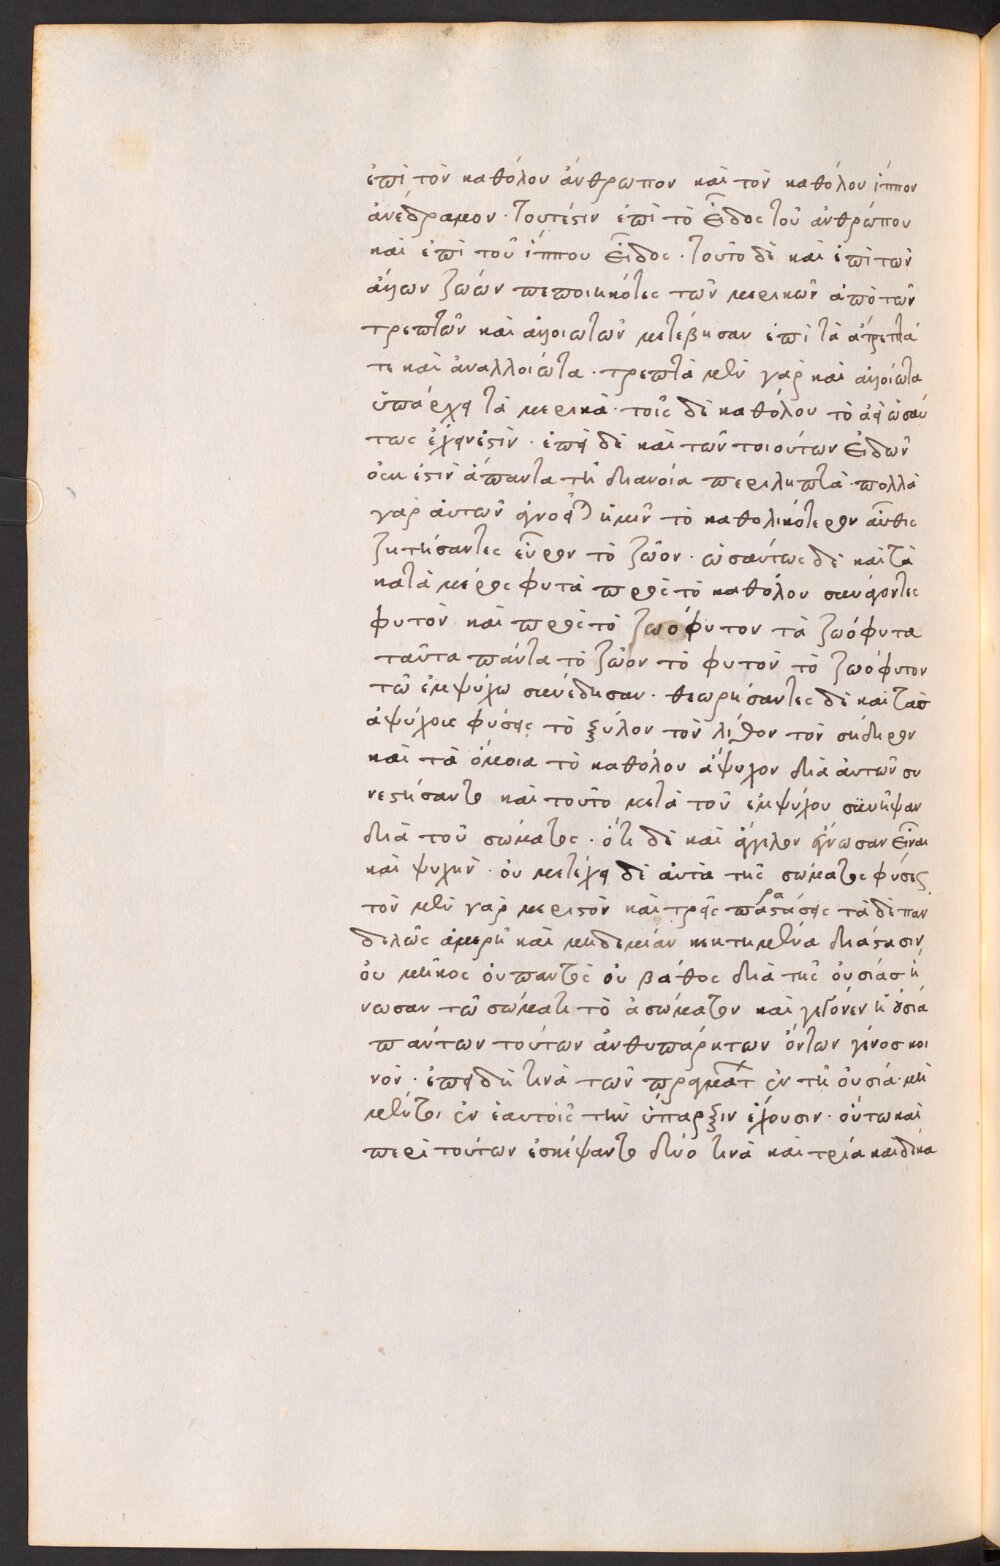 ἐπὶ τὸν καθόλου ἄνθρωπον καὶ τὸν καθόλου ἵππον
ἀνέδραμον· τουτέστιν ἐπὶ τὸ εἶδος τοῦ ἀνθρώπου
καὶ ἐπὶ τοῦ ἵππου εἶδος· τοῦτο δὲ καὶ ἐπὶ τῶν
ἄλλων ζώων πεποιηκότες τῶν μερικῶν ἀπὸ τῶν
τρεπτῶν καὶ ἀλλοιωτῶν μετέβησαν ἐπὶ τὰ ἄτρεπτά
τε καὶ ἀναλλοίωτα· τρεπτὰ μὲν γὰρ καὶ ἀλλοίωτα
ὑπάρχει τὰ μερικά· τοῖς δὲ καθόλου τὸ ἀεὶ ὡσαύ
τως ἔχειν ἐστίν· ἐπεὶ δὲ καὶ τῶν τοιούτων εἰδῶν
οὐκ ἐστὶν ἅπαντα τῇ διανοίᾳ περιληπτά· πολλὰ
γὰρ αὐτῶν ἡμῖν τὸ καθολικότερον αὖθις
ζητήσαντες εὗρον τὸ ζῶον· ὡσαύτως δὲ καὶ τὰ
κατὰ μέρος φυτὰ πρὸς τὸ καθόλου συνάγοντες
φυτὸν καὶ πρὸς τὸ ζωόφυτον τὰ ζωόφυτα
ταῦτα πάντα τὸ ζῶον τὸ φυτὸν τὸ ζωόφυτον
τῶ ἐμψύχω συνέδησαν· θεωρήσαντες δὲ καὶ τὰς
ἀψύχους φύσεις τὸ ξύλον τὸν λίθον τὸν σίδηρον
καὶ τὰ ὅμοια τὸ καθόλου ἄψυχον διὰ αὐτῶν συ
νεστήσαντο καὶ τοῦτο μετὰ τοῦ ἐμψύχου συνῆψαν
διὰ τοῦ σώματος· ὅτι δὲ καὶ ἄγγελον ἔγνωσαν εἶναι
καὶ ψυχήν· οὐ μετέχει δὲ αὐτὰ τῆς σώματος φύσεως
τὸν μὲν γὰρ μεριστὸν καὶ τρεῖς παραστάσεις τὰ δὲ παν
τελῶς ἀμερῆ καὶ μηδεμίαν κεκτημένα διάστασιν
οὐ μῆκος οὐ πλάτος οὐ βάθος διὰ τῆς οὐσίας ἥ
νωσαν τῶ σώματι τὸ ἀσώματον καὶ γέγονεν ἡ οὐσία
πάντων τούτων ἀνθυπάρκτων ὄντων γένος κοι
νόν· ἐπειδὴ τινὰ τῶν πραγμάτων ἐν τῇ οὐσίᾳ μὴ
μέντοι ἐν ἑαυτοῖς τὴν ὕπαρξιν ἔχουσιν· οὕτω καὶ
περὶ τούτων ἐσκέψαντο δύο τινὰ καὶ τρία καὶ δέκα